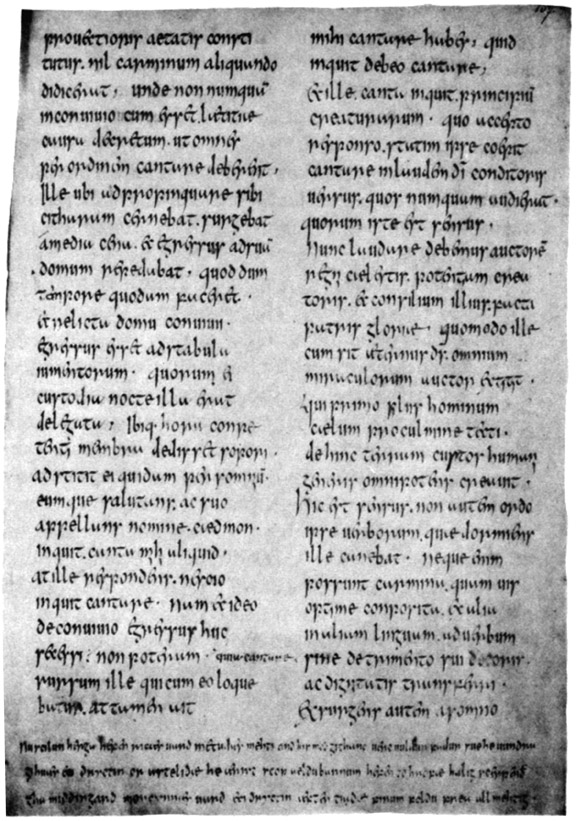 prouectioris aetatis consti
tutus . nil carminum aliquando
didicerat , unde non numquã
in conuiuio cum eēt . laetitiae
causa decretum . ut omnes
per ordinem cantare deberent ,
Ille ubi adpropinquare sibi
citharam cernebat . surgebat
a media caena . & egressus ad suã
domum repedabat . quod dum
tempore quodam faceret .
& relicta domu conuiui
egressus esset ad stabula
iumentorum . quorum ei
custodia nocte illa erat
delegata , Ibiq; hora conpe
tenti membra dedisset sopori .
adstitit ei quidam per somniũ .
eumque salutans . ac suo
appellans nomine . caedmon .
inquit . canta mihi aliquid ,
at ille respondens . nescio
inquit cantare . nam & ideo
de conuiuio egressus huc
secessi ; non poteram . quia cantare .
rursum ille qui cum eo loque
batur . attamen ait
mihi cantare habes , quid
inquit debeo cantare ,
& ille . canta inquit . principiũ
creaturarum . quo accepto
responso . statim ipse coepit
cantare in laudem dī conditoris
uersus . quos numquam audierat .
quorum iste est sensus ,
Nunc laudare debemus auctorẽ
regni caelestis . potentiam crea
toris . & consilium illius . facta
patris gloriae . quomodo ille
cum sit aeternus ds . omnium
miraculorum auctor extitit .
qui primo filiis hominum
caelum pro culmine tecti .
dehinc terram custos humani
generis omnipotens creauit .
hic est sensus . non autem ordo
ipse uerborum . quae dormiens
ille canebat . neque enim
possunt carmina . quamuis
optime conposita . ex alia
in aliam linguam . ad uerbum
sine detrimento sui decoris .
ac dignitatis transferri .
Exsurgens autem a somno
Nu scilun herga hefen ricæs uard metudæs mehti and his modgithanc uerc uuldur fadur sue he uundra
gihuæs eci dryctin or astelidæ he ærist scop ældu barnum hefen to hrofæ halig sceppend
tha middingard moncynnæs uard eci dryctin æfter tiadæ firum foldu frea allmehtig .